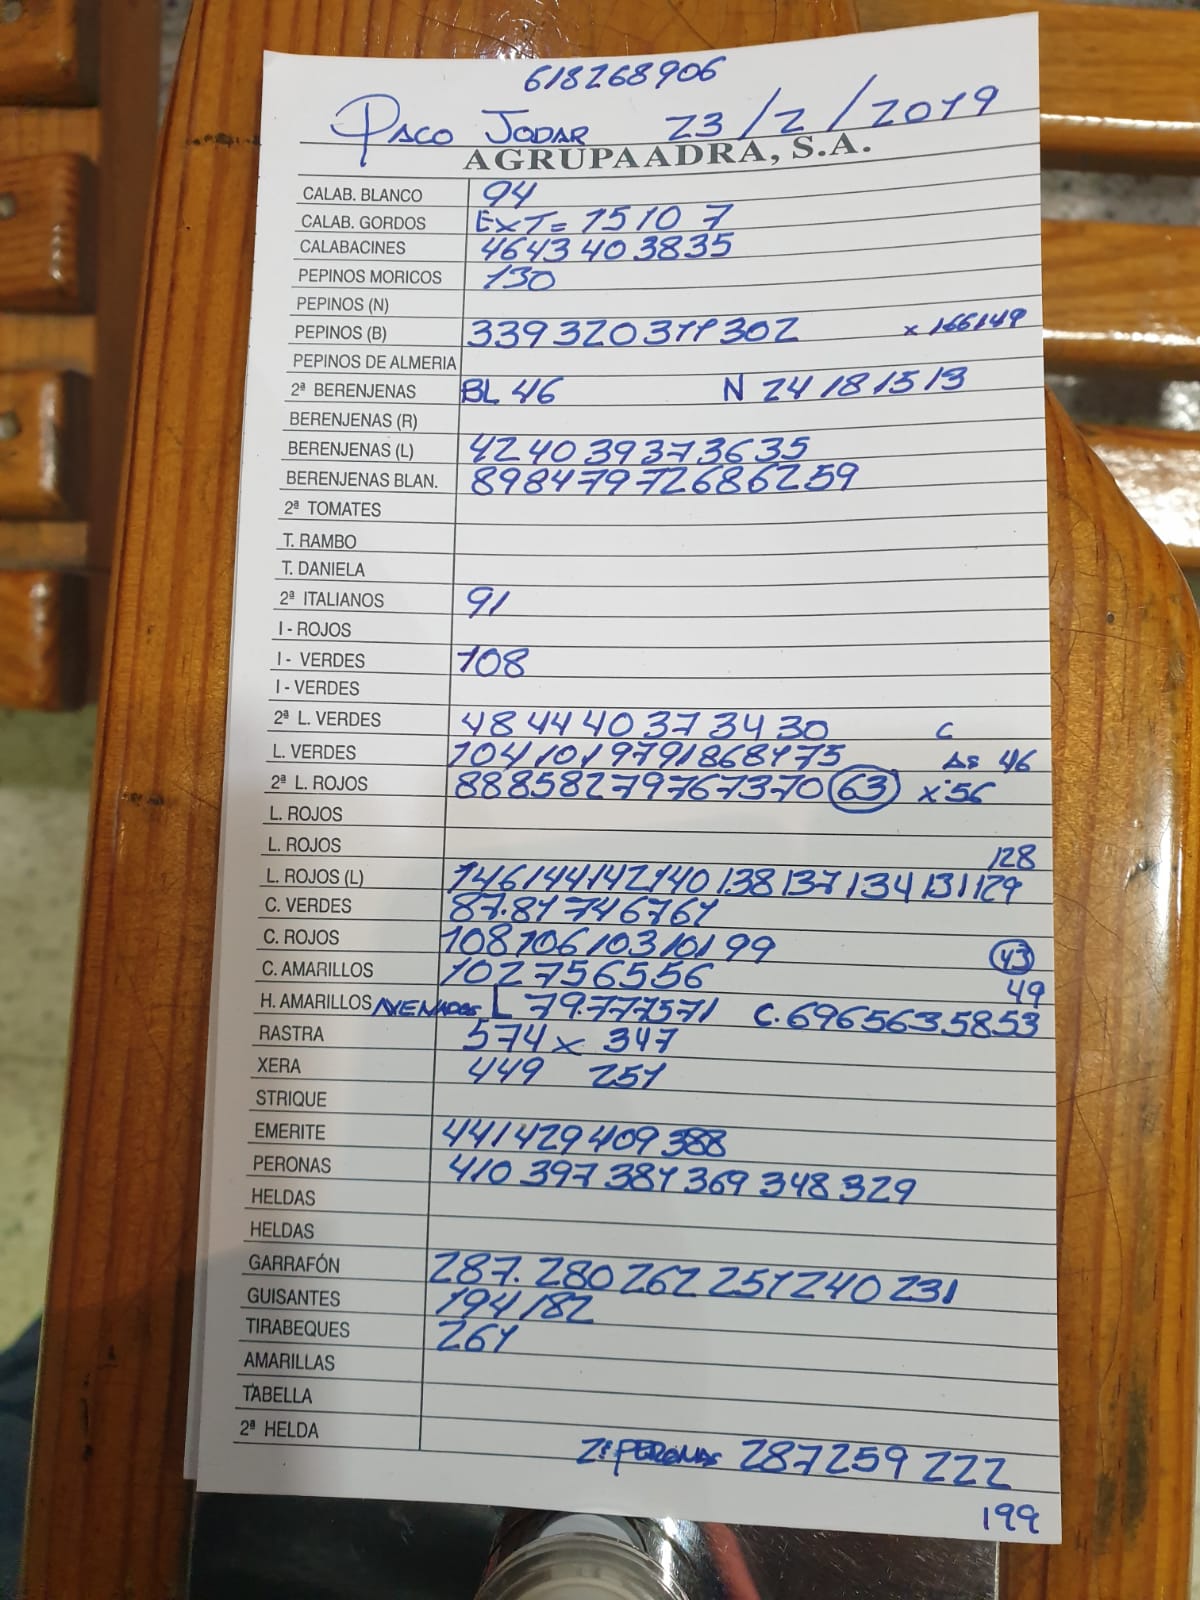 618268906
PACO JODAR 23/2/2019
AGRUPAADRA, S.A.
CALAB. BLANCO 94
CALAB. GORDOS EXT= 15 10 7
CALABACINES 46 43 40 38 35
PEPINOS MORICOS 130
PEPINOS (N)
PEPINOS (B) 339 320 311 302 x 166 149
PEPINOS DE ALMERIA
2ª BERENJENAS BL 46 N 24 18 15 13
BERENJENAS (R)
BERENJENAS (L) 42 40 39 37 36 35
BERENJENAS BLAN. 89 84 79 72 68 62 59
2ª TOMATES
T. RAMBO
T. DANIELA
2ª ITALIANOS 91
I - ROJOS
I - VERDES 108
I - VERDES
2ª L. VERDES 48 44 40 37 34 30 C
L. VERDES 104 101 97 91 86 81 75 46
2ª L. ROJOS 88 85 82 79 76 73 70 63 x 56
L. ROJOS
L. ROJOS 128
L. ROJOS (L) 146 144 142 140 138 137 134 131 129
C. VERDES 87. 81 74 67 61
C. ROJOS 108 106 103 101 99 43
C. AMARILLOS 102 75 65 56 49
H. AMARILLOS L 79. 77 75 71 C. 69 65 63 58 53
RASTRA 574 x 347
XERA 449 251
STRIQUE
EMERITE 441 429 409 388
PERONAS 410 397 381 369 348 329
HELDAS
HELDAS
GARRAFÓN 287. 280 262 251 240 231
GUISANTES 194 182
TIRABEQUES 261
AMARILLAS
TABELLA
2ª HELDA
2ª PERONAS 287 259 222
199